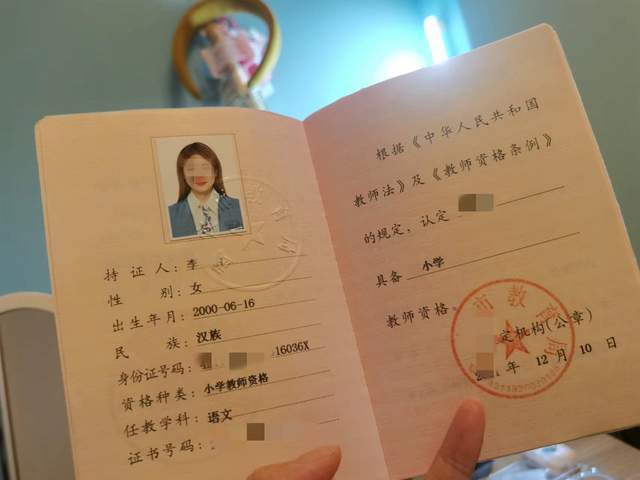 持证人：李
性别：女
出生年月：2000-06-16
民族：汉族
身份证号码：16036X
资格种类：小学教师资格
任教学科：语文
证书号码：
根据《中华人民共和国
教师法》及《教师资格条例》
的规定，认定
具备 小学
教师资格。
市教育局
定机构(公章)
年 12 月 10 日